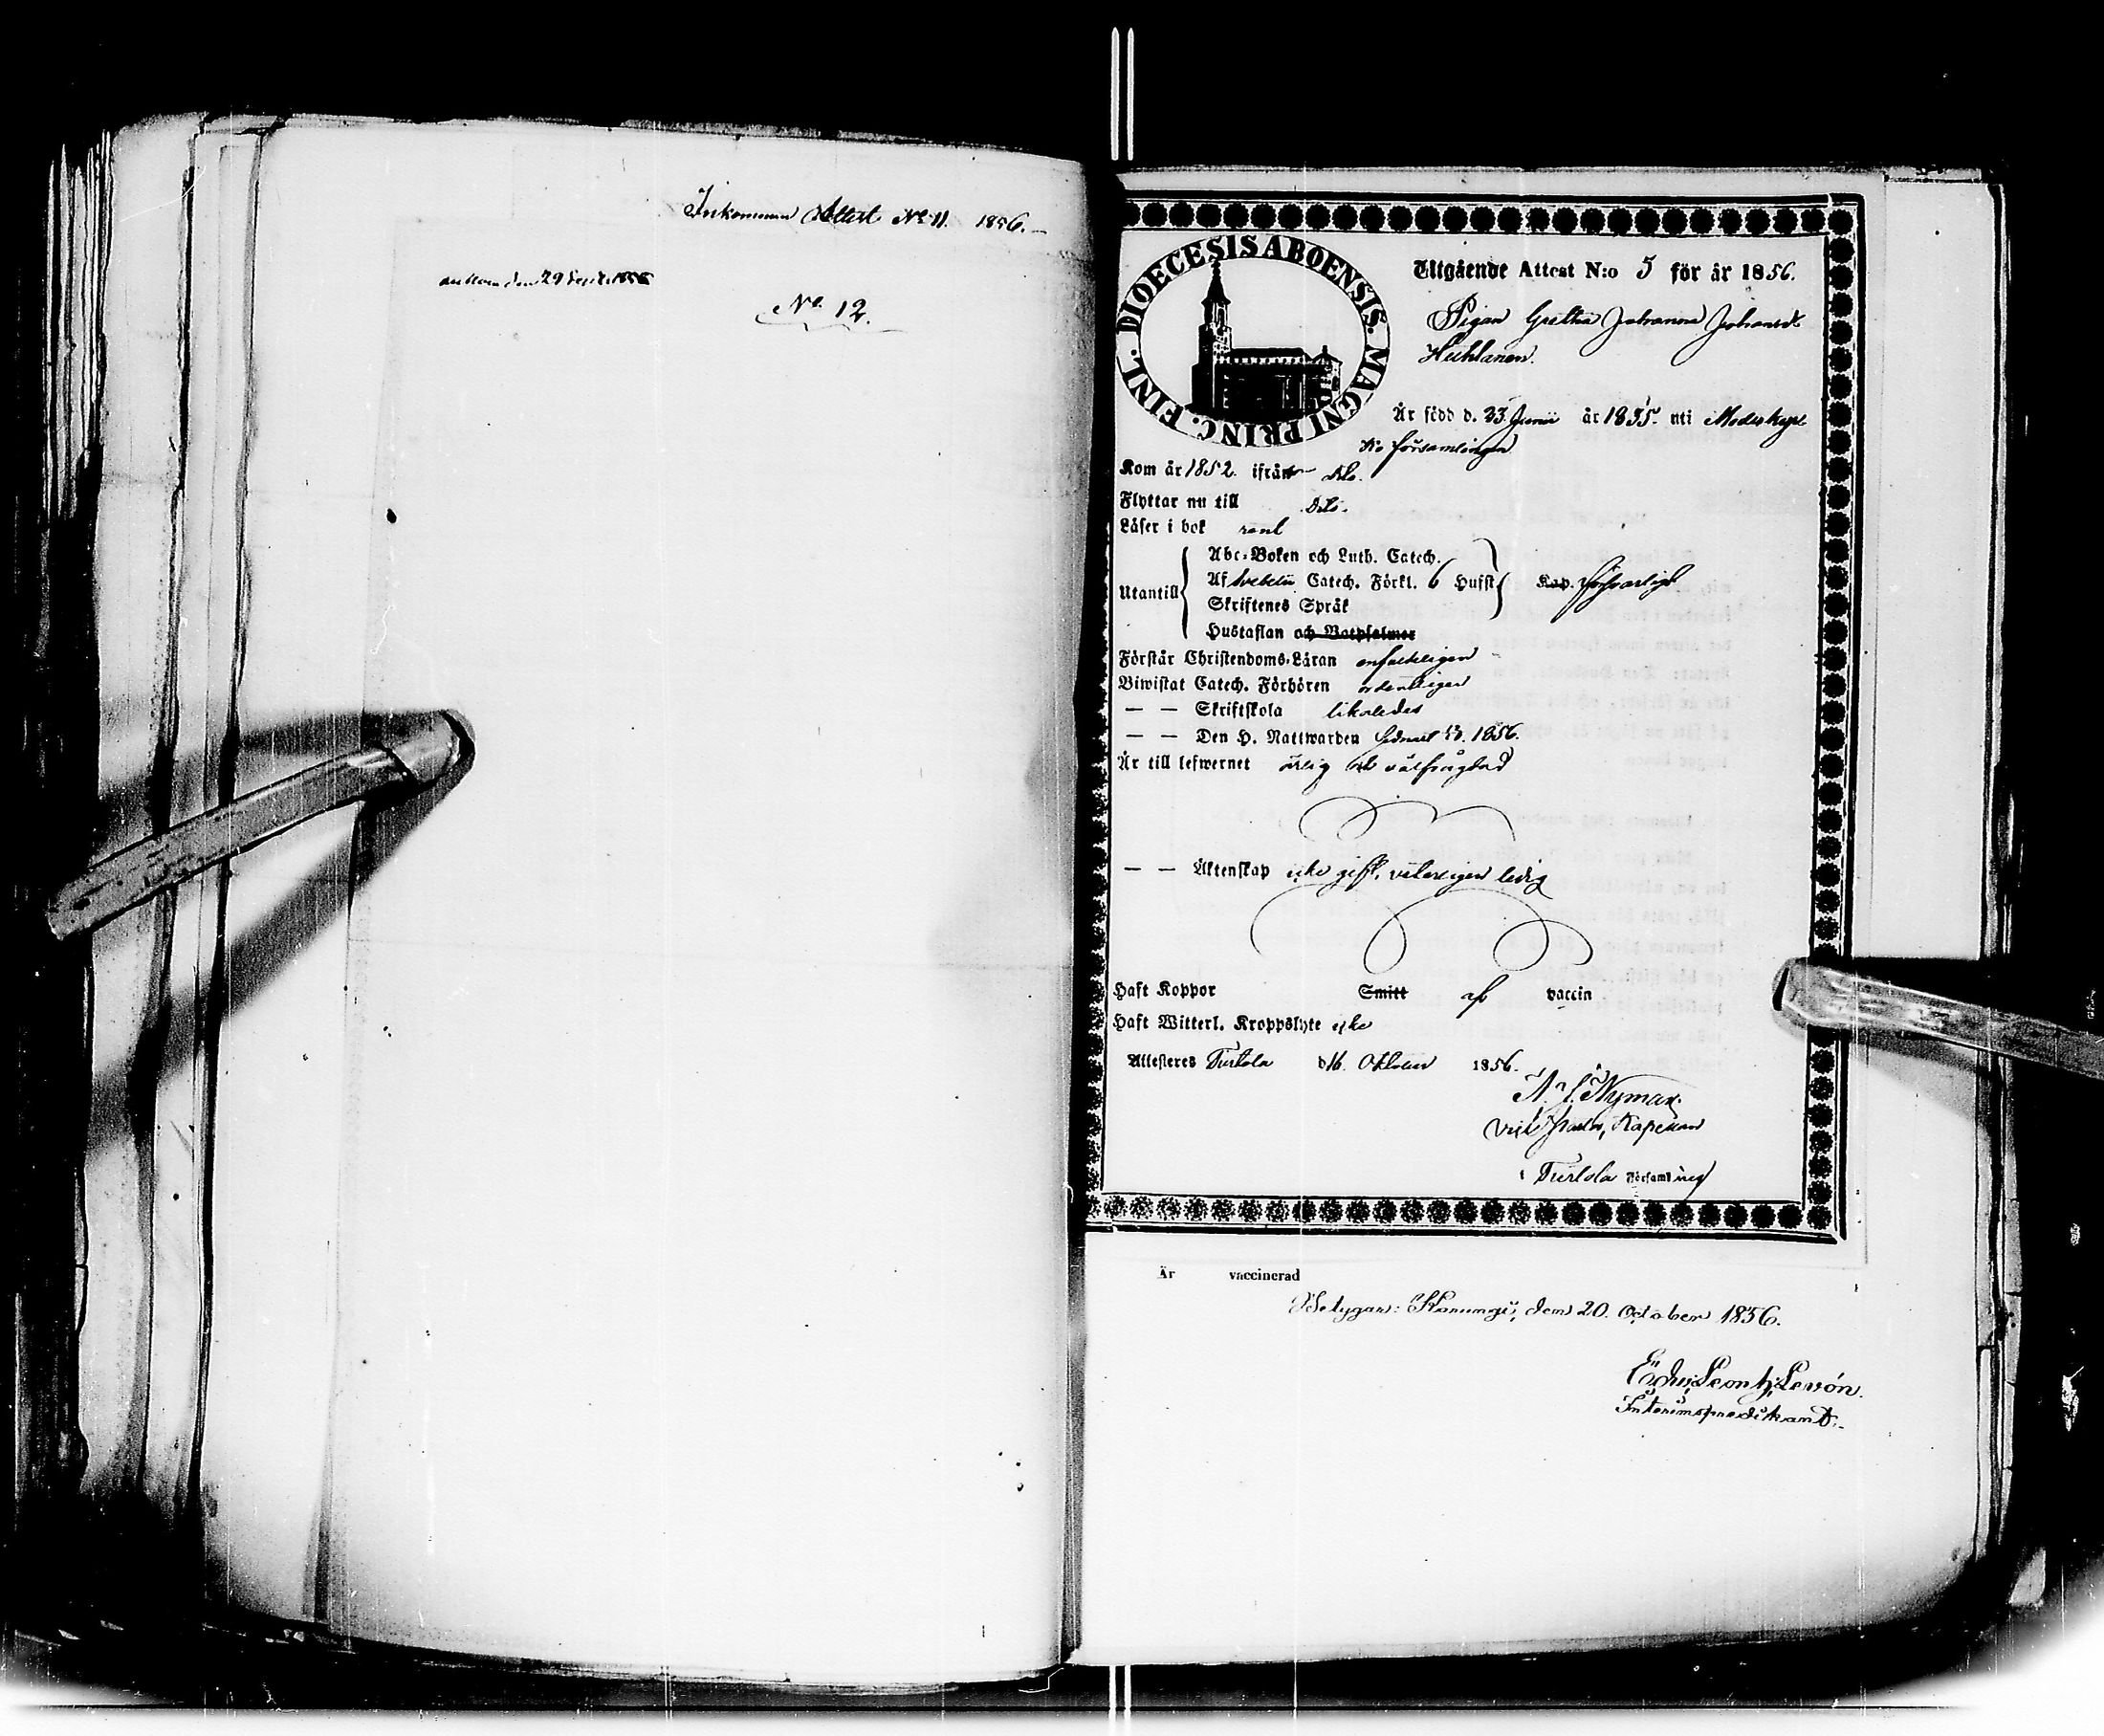 Inkommen Attest No 11. 1856.
ankom den 29 Sept. 1856
No. 12.
FINL. DIOECESIS ABOENSIS. MAGNI PRINC.
Utgående Attest N:o 5 för år 1856.
Pigan Gretha Johanna Johansdr
Huhtanen.
Är född d. 23 Junii år 1835. uti Moderkyrk
ko församlingen
Kom år 1852. ifrån do.
Flyttar nu till do.
Läser i bok rent
Utantill
Abc-Boken och Luth. Catech.
Af Svebelii Catech. Förkl. 6 Hufst Kap. försvarligt
Skriftenes Språk
Hustaflan och Botpsalmer
Förstår Christendoms-Läran enfaldeligen
Biwistat Catech. Förhören ordentligen
— — Skriftskola likaledes
— — Den H. Nattwarden 1856.
Är till lefwernet ärlig och välfrägdad
— — Äktenskap icke gift, veterligen ledig
Haft Koppor Smitt af vaccin
Haft Witterl. Kroppslyte icke
Attesteres Turtola d 16. Oktober 1856.
Nyman
Vice Pastor, Kapellan
i Turtola Församling
Är vaccinerad
Betygar: Karungi, den 20. October 1856.
Edv. Leonh. Levón.
Interimspredikant.